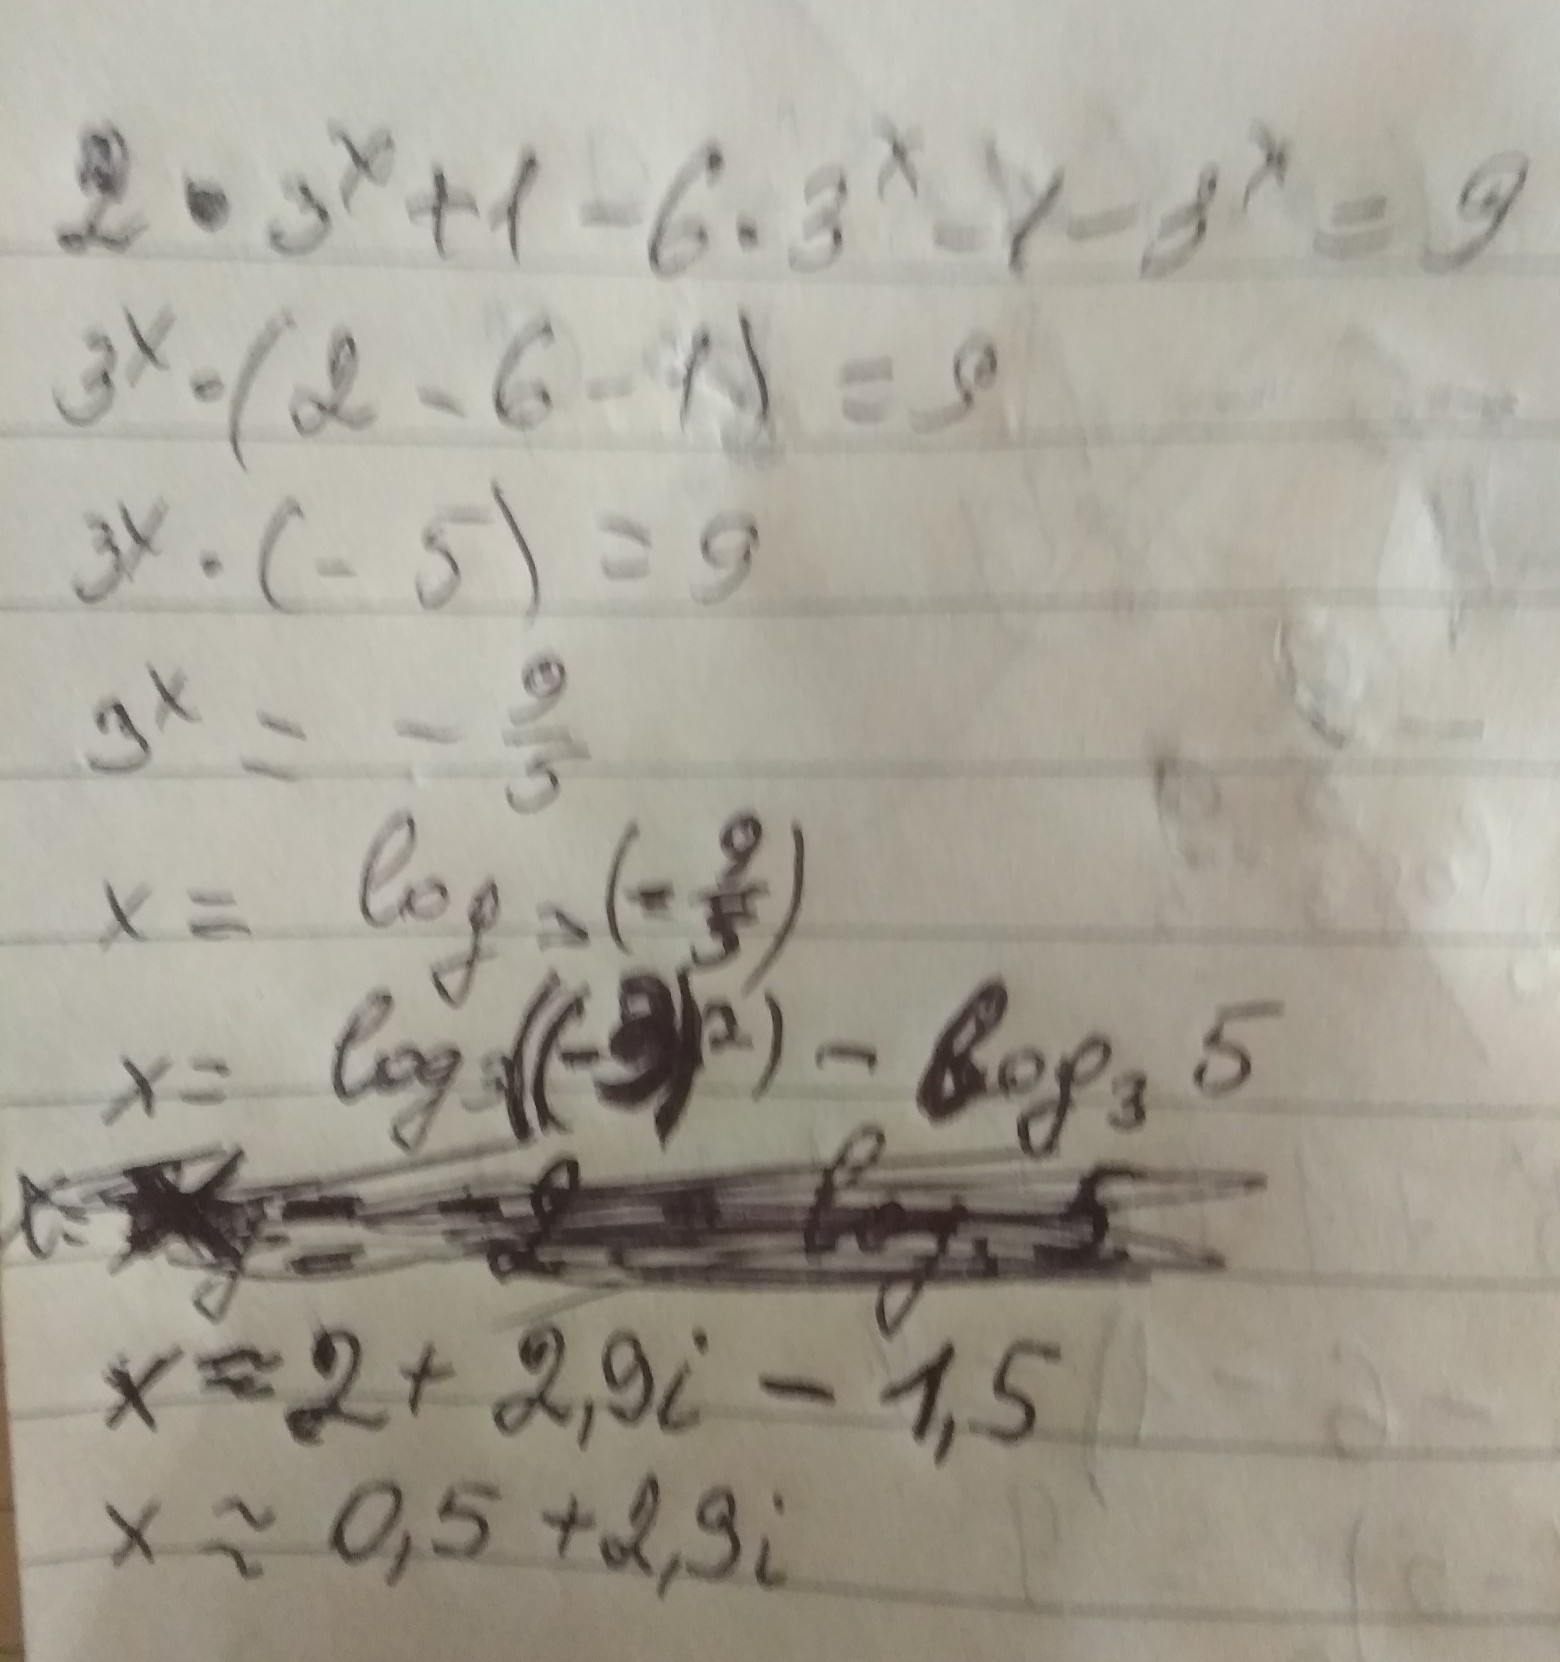 2 · 3ˣ + 1 - 6 · 3ˣ - 1 - 3ˣ = 9
3ˣ · (2 - 6 - 1) = 9
3ˣ · (- 5) = 9
3ˣ = - 9/5
x = log₃ (- 9/5)
x = log₃ ((-3)²) - log₃ 5
x ≈ 2 + 2,9i - 1,5
x ≈ 0,5 + 2,9i